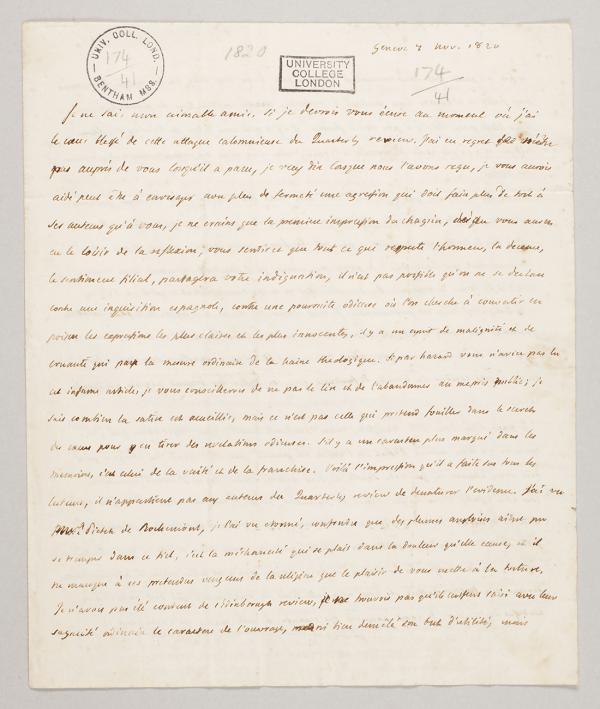 UNIV. COLL. LOND.
BENTHAM MSS.
174
41
1820
UNIVERSITY
COLLEGE
LONDON
174
41
Geneve 7 Nov. 1820
Je ne sais, mon aimable amie, si je devrois vous écrire au moment où j'ai
le cœur blessé de cette attaque calomnieuse du Quarterly review. J'ai eu regret
pas auprès de vous lorsqu'il a paru, je veux dire lorsque nous l'avons reçu, je vous aurois
aidé peut être à envisager avec plus de fermeté une agression qui doit faire plus de tort à
ses auteurs qu'à vous, je ne crains que la premiere impression du chagrin, vous aurez
eu le loisir de la reflexion, vous sentirez que tout ce qui respecte l'honneur, la decence,
le sentiment filial, partagera votre indignation, il n'est pas possible qu'on ne se declare
contre une inquisition espagnole, contre une poursuite odieuse où l'on cherche à convertir en
poison les expressions les plus claires et les plus innocentes, il y a un esprit de malignité et de
cruauté qui passe la mesure ordinaire de la haine theologique. Si par hazard vous n'aviez pas lu
cet infame article, je vous conseillerois de ne pas le lire et de l'abandonner au mepris public; je
sais combien la satire est accueillie, mais ce n'est pas celle qui pretend fouiller dans le secret
des cœurs pour y en tirer des revelations odieuses. S'il y a un caractere plus marqué dans les
memoires, c'est celui de la verité et de la franchise. Voilà l'impression qu'il a faite sur tous les
lecteurs, il n'appartient pas aux auteurs du Quarterly review de denaturer l'evidence. J'ai vu
Pictet de Rochemont, je l'ai vu etonné, confondre que des plumes angloises aient pu
se tremper dans ce fiel, c'est la méchanceté qui se plait dans la douleur qu'elle cause, et il
ne manque à ces pretendus vengeurs de la religion que le plaisir de vous mettre à la torture.
Je n'avois pas été content de l'Edinborough review, je ne trouvois pas qu'ils eussent saisi avec leur
sagacité ordinaire le caractere de l'ouvrage, ni bien demêlé son but d'utilité, mais